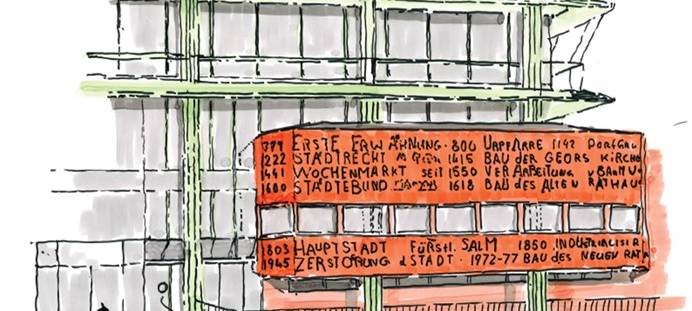 779 ERSTE ERWÄHNUNG · 800 URPFARRE 1142 DORFGRÜ
1222 STADTRECHT 1415 BAU DER GEORS KIRCHE
1441 WOCHENMARKT SEIT 1550 VERARBEITUNG V BAUMU
1600 STÄDTEBUND 1618 BAU DES ALTEN RATHAUS
1803 HAUPTSTADT FÜRSTL. SALM 1850 INDUSTRIALISIR
1945 ZERSTÖRUNG d STADT · 1972-77 BAU DES NEUEN RATH